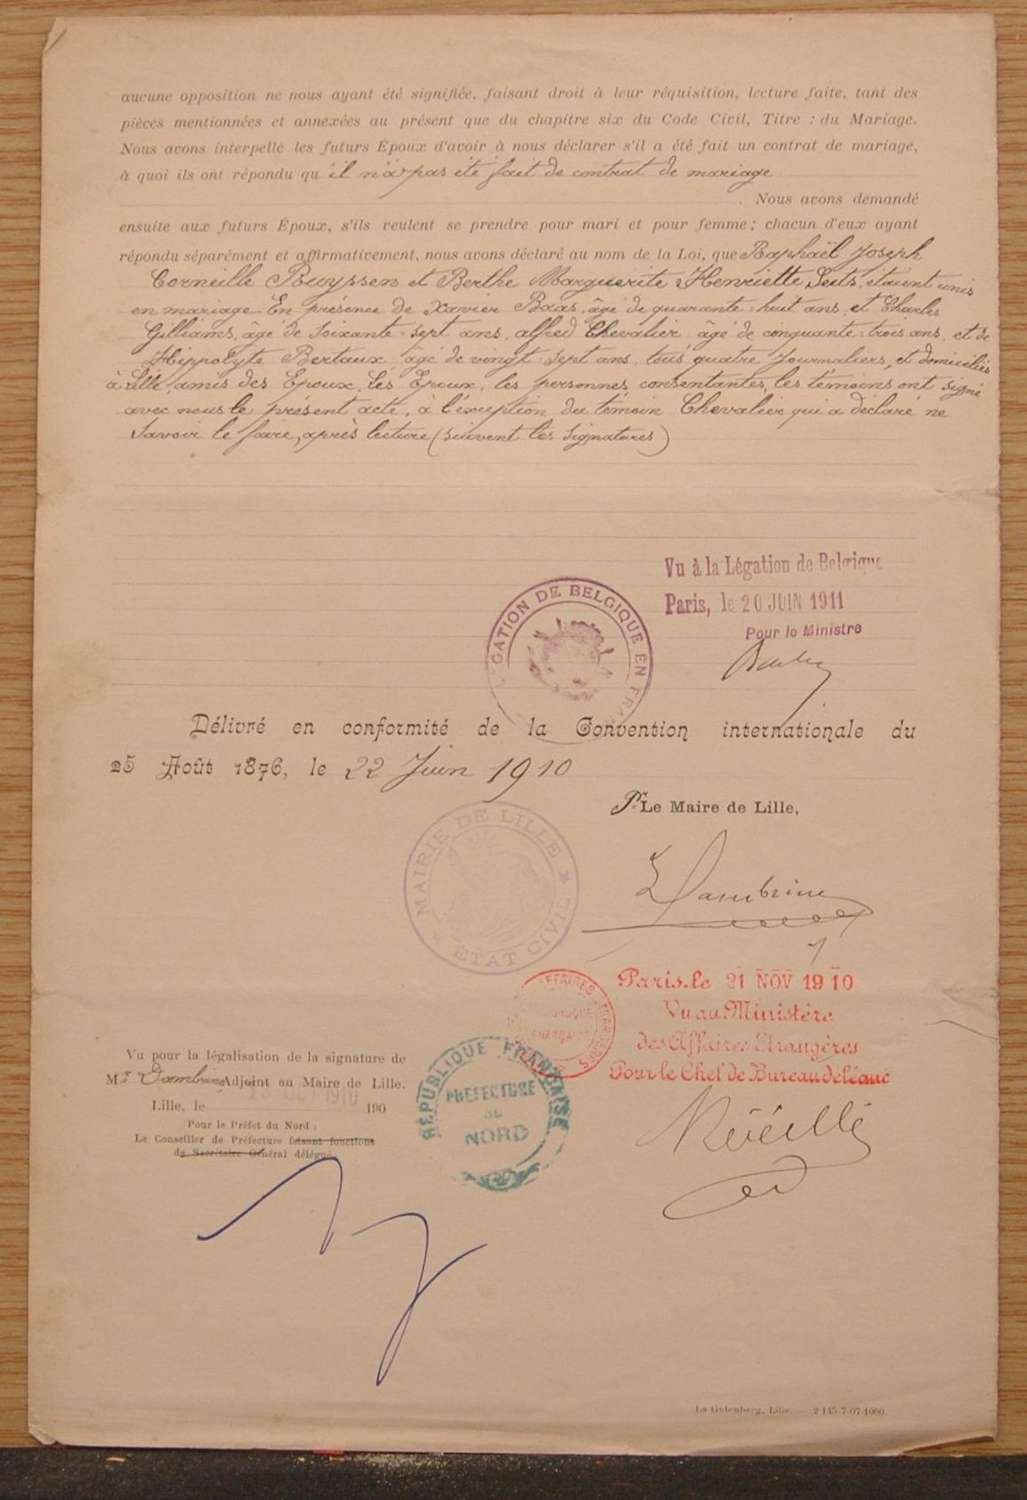 aucune opposition ne nous ayant été signifiée, faisant droit à leur réquisition, lecture faite, tant des
pièces mentionnées et annexées au présent que du chapitre six du Code Civil, Titre : du Mariage.
Nous avons interpellé les futurs Époux d'avoir à nous déclarer s'il a été fait un contrat de mariage,
à quoi ils ont répondu qu'il n'a pas été fait de contrat de mariage
. Nous avons demandé
ensuite aux futurs Époux, s'ils veulent se prendre pour mari et pour femme ; chacun d'eux ayant
répondu séparément et affirmativement, nous avons déclaré au nom de la Loi, que Raphaël Joseph
Corneille Ruyssen et Berthe Marguerite Henriette étaient unis
en mariage. En présence de Xavier Baas, âgé de quarante-huit ans, et Charles
Gilliams, âgé de soixante-sept ans, alfred Chevalier âgé de cinquante trois ans, et de
Hippolyte Bertaux âgé de vingt-sept ans, tous quatre journaliers, et domiciliés
à Lille, amis des Epoux. Les Epoux, les personnes consentantes, les témoins ont signé
avec nous le présent acte, à l'exception du témoin Chevalier qui a déclaré ne
savoir le faire, après lecture (suivent les signatures)
Vu à la Légation de Belgique
Paris, le 20 JUIN 1911
Pour le Ministre
LÉGATION DE BELGIQUE EN FRA
Délivré en conformité de la Convention internationale du
25 Août 1876, le 22 Juin 1910
Pr Le Maire de Lille,
Dambrine
MAIRIE DE LILLE
ÉTAT CIVIL
Paris, le 21 NOV 1910
Vu au Ministère
des Affaires Étrangères
Pour le Chef de Bureau délégué
AFFAIRES ÉTRANGÈRES
Réveillé
Vu pour la légalisation de la signature de
Mr Dambrine Adjoint au Maire de Lille.
Lille, le 1910 190
Pour le Préfet du Nord :
Le Conseiller de Préfecture faisant fonctions
de Secrétaire Général délégué
RÉPUBLIQUE FRANÇAISE
PRÉFECTURE
DU
NORD
La Gutenberg, Lille. — 2-145-7-07-1000.